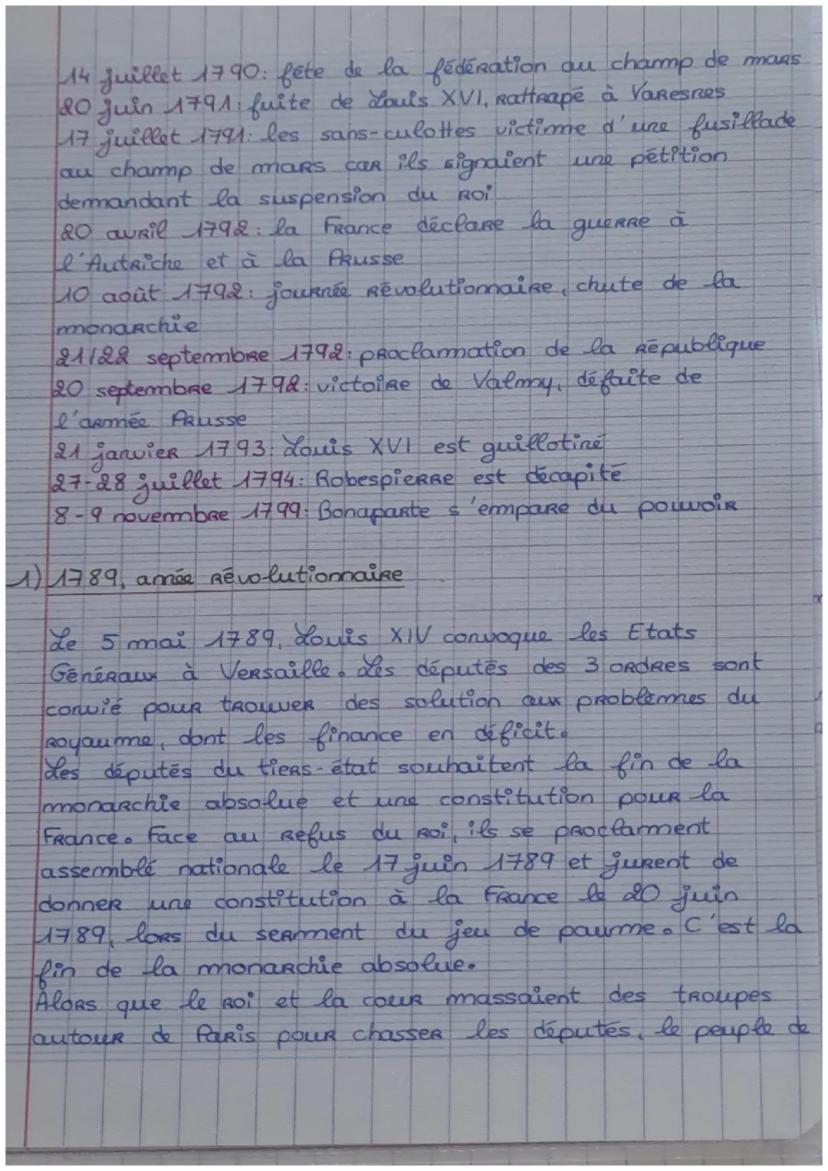 14 juillet 1790: fête de la fédération au champ de mars
20 juin 1791: fuite de Louis XVI, rattrapé à Varesnes
17 juillet 1791: les sans-culottes victime d'une fusillade
au champ de mars car ils signaient une pétition
demandant la suspension du roi
20 avril 1792: la France déclare la guerre à
l'Autriche et à la Prusse
10 août 1792: journée révolutionnaire, chute de la
monarchie
21/22 septembre 1792: proclamation de la république
20 septembre 1792: victoire de Valmy, défaite de
l'armée Prusse
21 janvier 1793: Louis XVI est guillotiné
27-28 juillet 1794: Robespierre est décapité
8-9 novembre 1799: Bonaparte s'empare du pouvoir
1) 1789, année révolutionnaire
Le 5 mai 1789, Louis XIV convoque les Etats
Généraux à Versaille. Les députés des 3 ordres sont
convié pour trouver des solution aux problèmes du
royaume, dont les finance en déficit.
Les députés du tiers-état souhaitent la fin de la
monarchie absolue et une constitution pour la
France. Face au refus du roi, ils se proclament
assemblé nationale le 17 juin 1789 et jurent de
donner une constitution à la France le 20 juin
1789, lors du serment du jeu de paume. C'est la
fin de la monarchie absolue.
Alors que le roi et la cour massaient des troupes
autour de Paris pour chasser les députés, le peuple de